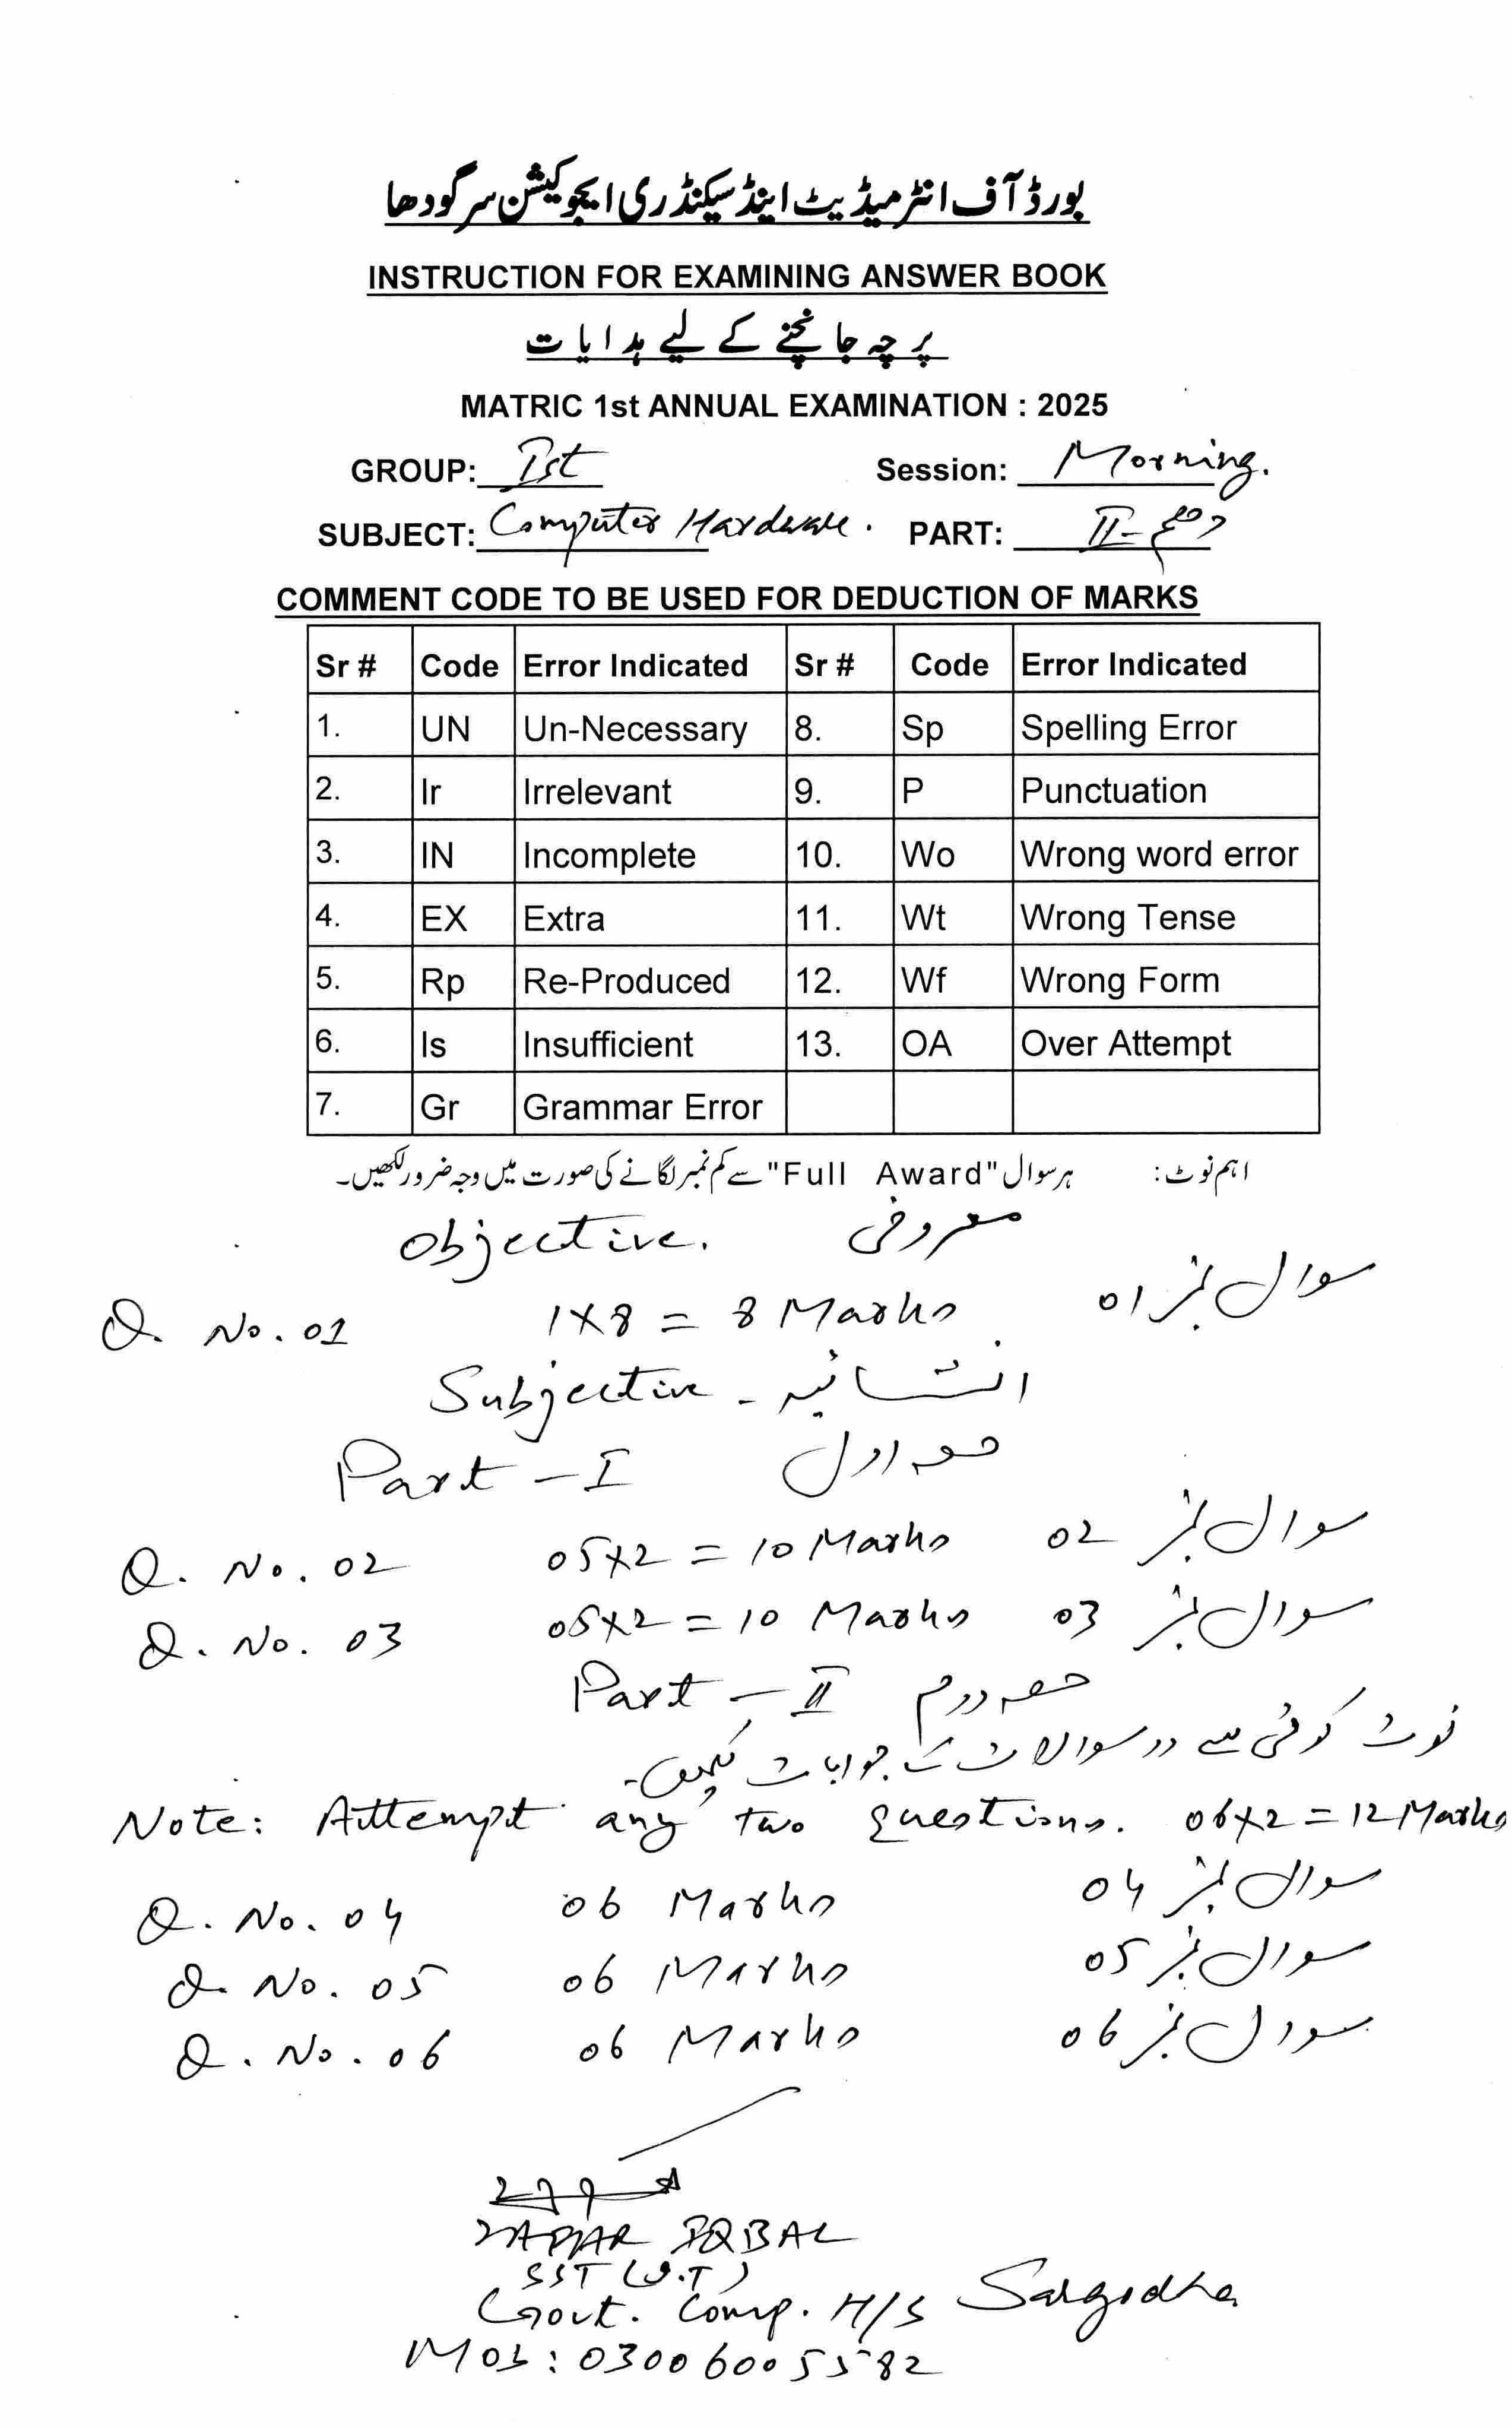 بورڈ آف انٹرمیڈیٹ اینڈ سیکنڈری ایجوکیشن سرگودھا
INSTRUCTION FOR EXAMINING ANSWER BOOK
پرچہ جانچنے کے لیے ہدایات
MATRIC 1st ANNUAL EXAMINATION : 2025
GROUP: Ist Session: Morning.
SUBJECT: Computer Hardware. PART: II-
COMMENT CODE TO BE USED FOR DEDUCTION OF MARKS
Sr # Code Error Indicated Sr # Code Error Indicated
1. UN Un-Necessary 8. Sp Spelling Error
2. Ir Irrelevant 9. P Punctuation
3. IN Incomplete 10. Wo Wrong word error
4. EX Extra 11. Wt Wrong Tense
5. Rp Re-Produced 12. Wf Wrong Form
6. Is Insufficient 13. OA Over Attempt
7. Gr Grammar Error
اہم نوٹ: ہر سوال "Full Award" سے کم نمبر لگانے کی صورت میں وجہ ضرور لکھیں۔
Objective. معروضی
Q. No. 01 1×8 = 8 Marks سوال نمبر 01
Subjective - انشائیہ
Part - I حصہ اول
Q. No. 02 05×2 = 10 Marks سوال نمبر 02
Q. No. 03 05×2 = 10 Marks سوال نمبر 03
Part - II حصہ دوم
نوٹ کوئی سے دو سوالات کے جوابات لکھیں۔
Note: Attempt any two questions. 06×2 = 12 Marks
Q. No. 04 06 Marks سوال نمبر 04
Q. No. 05 06 Marks سوال نمبر 05
Q. No. 06 06 Marks سوال نمبر 06
IQBAL
SST (I.T)
Govt. Comp. H/S Sargodha
Mob: 03006005582